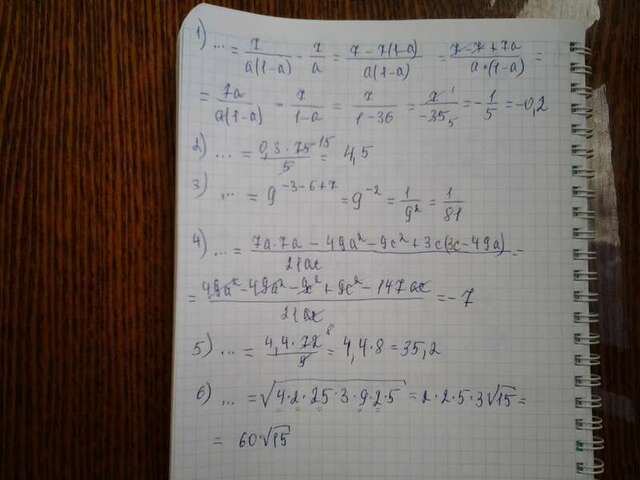 1) ... = 7/a(1-a) - 7/a = 7-7(1-a)/a(1-a) = 7-7+7a/a·(1-a) =
= 7a/a(1-a) = 7/1-a = 7/1-36 = 7¹/-35₅ = -1/5 = -0,2
2) ... = 0,3·75¹⁵/5 = 4,5
3) ... = 9^-3-6+7 = 9^-2 = 1/9² = 1/81
4) ... = 7a·7a-49a²-9c²+3c(3c-49a)/21ac =
= 49a²-49a²-9c²+9c²-147ac/21ac = -7
5) ... = 4,4·72⁸/9 = 4,4·8 = 35,2
6) ... = √4·2·25·3·9·2·5 = 2·2·5·3√15 =
= 60·√15